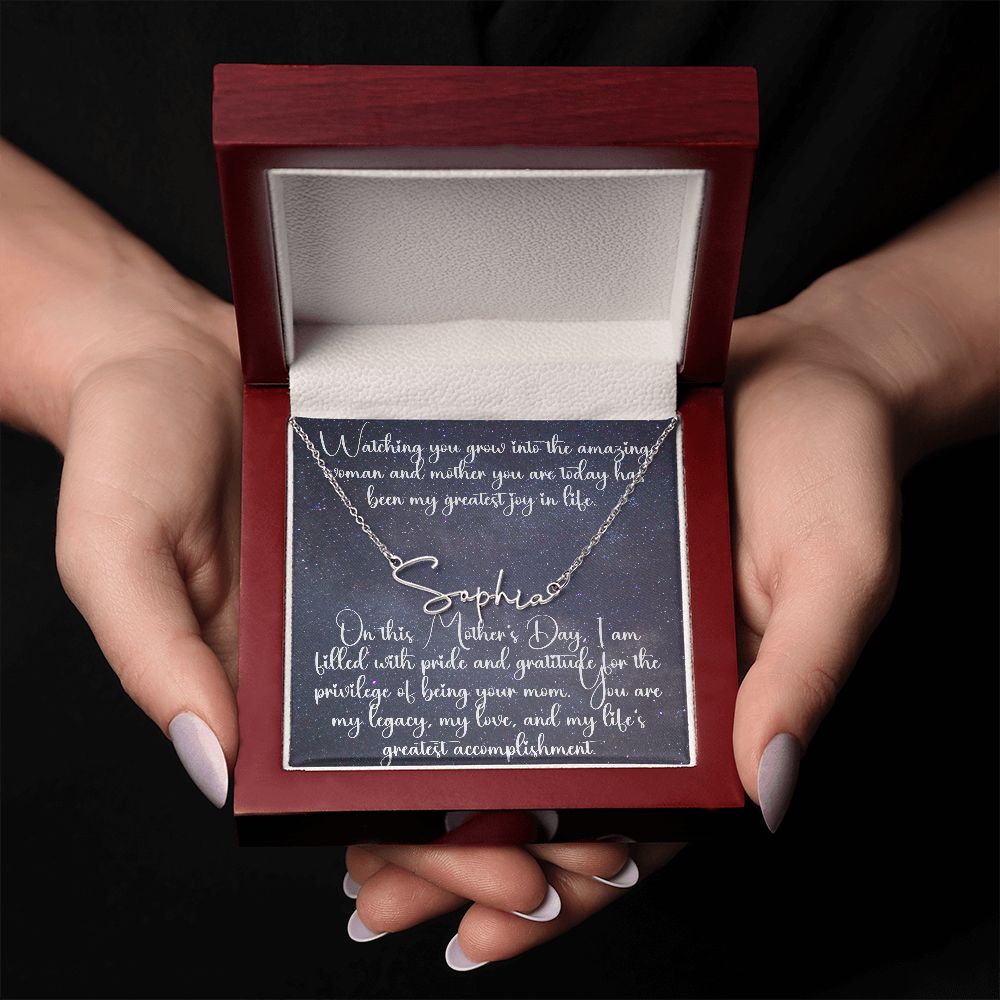 Watching you grow into the amazing
woman and mother you are today has
been my greatest joy in life.
Sophia
On this Mother's Day, I am
filled with pride and gratitude for the
privilege of being your mom. You are
my legacy, my love, and my life's
greatest accomplishment.